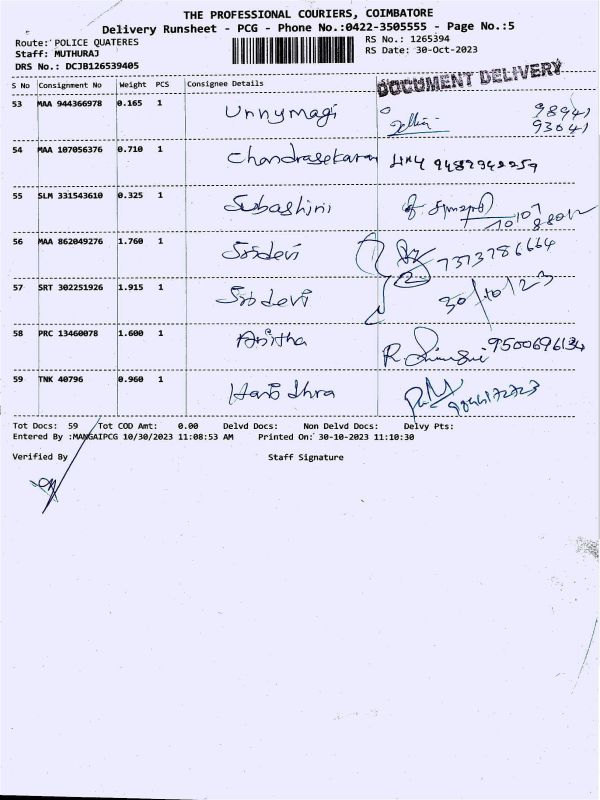 THE PROFESSIONAL COURIERS, COIMBATORE
Delivery Runsheet - PCG - Phone No.:0422-3505555 - Page No.:5
Route: POLICE QUATERES RS No.: 1265394
Staff: MUTHURAJ RS Date: 30-Oct-2023
DRS No.: DCJB126539405
DOCUMENT DELIVERY
S No Consignment No Weight PCS Consignee Details
53 MAA 944366978 0.165 1 Unnymagi 98941
93641
54 MAA 107056376 0.710 1 Chandrasekaran
55 SLM 331543610 0.325 1 Subashini
56 MAA 862049276 1.760 1 Sridevi 7373786664
57 SRT 302251926 1.915 1 Sridevi 30/10/23
58 PRC 13460078 1.600 1 Anitha
59 TNK 40796 0.960 1
Tot Docs: 59 Tot COD Amt: 0.00 Delvd Docs: Non Delvd Docs: Delvy Pts:
Entered By :MANGAIPCG 10/30/2023 11:08:53 AM Printed On: 30-10-2023 11:10:30
Verified By Staff Signature